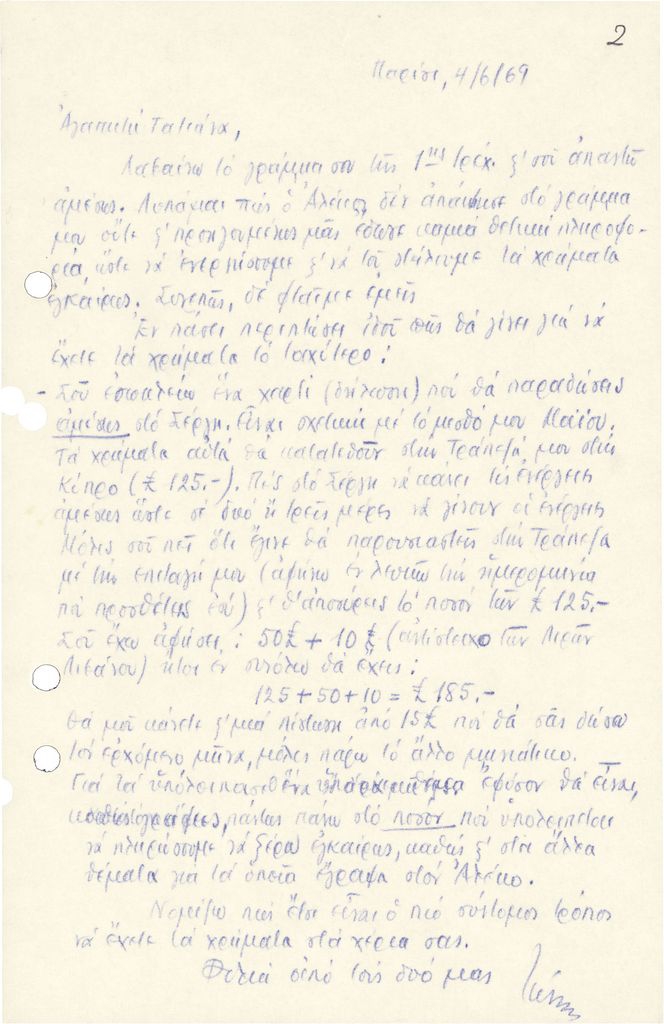 2
Παρίσι, 4/6/69
Ἀγαπητή Τατιάνα,
Λαβαίνω τό γράμμα σου τῆς 1ης τρέχ. ξ' σοῦ ἀπαντῶ
ἀμέσως. Λυπᾶμαι πώς ὁ Ἀλέκος δέν ἀπάντησε στό γράμμα
μου οὔτε ξ' προηγουμένως μᾶς ἔδωσε καμιά θετική πληροφο-
ρία, ὥστε νά ἐνεργήσουμε ξ' νά τοῦ στείλουμε τά χρήματα
ἐγκαίρως. Συνεπῶς, δέ φταῖμε ἐμεῖς
Ἐν πάσει περιπτώσει ἰδού πῶς θά γίνει γιά νά
ἔχετε τά χρήματα τό ταχύτερο:
- Σοῦ ἐσωκλείω ἕνα χαρτί (δήλωση) πού θά παραδώσεις
ἀμέσως στό Σέργη. Εἶναι σχετική μέ τό μισθό μου Μαΐου.
Τά χρήματα αὐτά θά κατατεθοῦν στήν Τράπεζά μου στήν
Κύπρο (£ 125.-). Πές στό Σέργη νά κάνει τίς ἐνέργειες
ἀμέσως ὥστε σέ δυό ἤ τρεῖς μέρες νά γίνουν οἱ ἐνέργειες
Μόλις σοῦ πεῖ ὅτι ἔγινε θά παρουσιαστεῖς στήν Τράπεζα
μέ τήν ἐπιταγή μου (ἀφήνω ἐν λευκῷ τήν ἡμερομηνία
πού προσθέτεις ἐσύ) ξ' θ' ἀποσύρεις τό ποσόν τῶν £ 125.-
Σοῦ ἔχω ἀφήσει: 50£ + 10 £ (ἀντίστοιχο τῶν Λιρῶν
Λιβάνου) ἤτοι ἐν συνόλῳ θά ἔχεις:
125 + 50 + 10 = £ 185.-
Θά μοῦ κάνετε ξ' μιά πίστωση ἀπό 15£ πού θά σᾶς δώσω
τόν ἐρχόμενο μῆνα, μόλις πάρω τό ἄλλο μηνιάτικο.
Γιά τά ὑπόλοιπα ἐφόσον θά εἶναι,
πάντως πάνω στό ποσόν πού ὑπολείπεται
νά πληρώσουμε νά ξέρω ἐγκαίρως, καθώς ξ' στά ἄλλα
θέματα γιά τά ὁποῖα ἔγραφα στόν Ἀλέκο.
Νομίζω πώς ἔτσι εἶναι ὁ πιό σύντομος τρόπος
νά ἔχετε τά χρήματα στά χέρια σας.
Φιλιά ἀπό τούς δυό μας